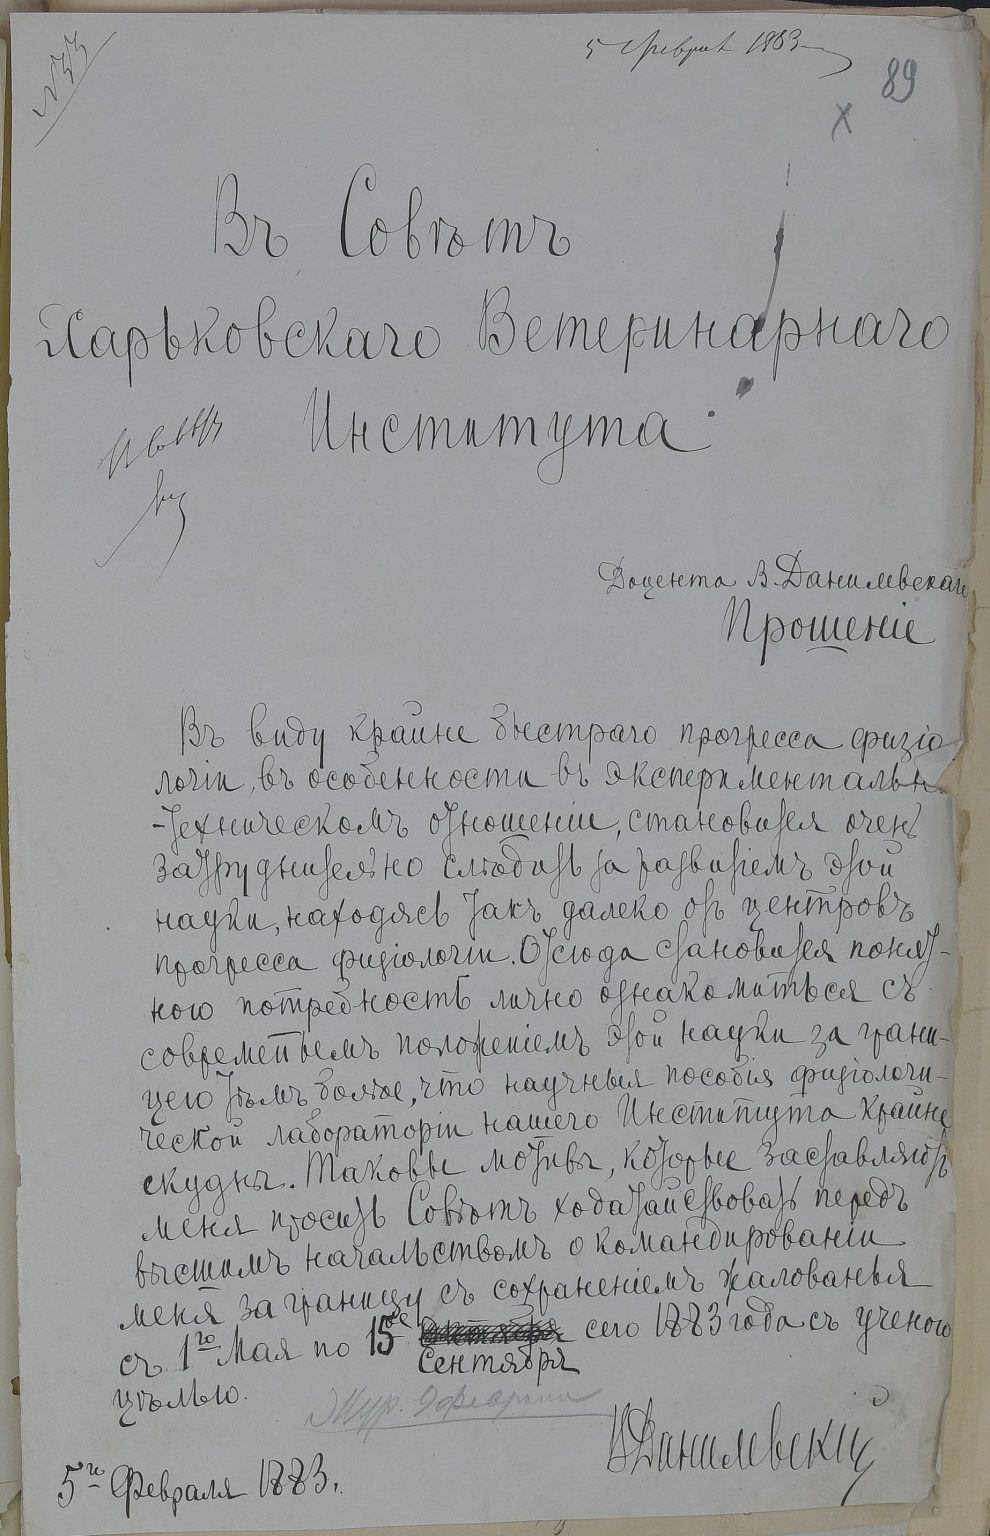 № 33
5 Февраля 1883
89
Въ Совѣтъ
Харьковскаго Ветеринарнаго
Института
Доцента В. Данилевскаго
Прошеніе
Въ виду крайне быстраго прогресса физіо
логіи, въ особенности въ экспериментальн
-техническомъ отношеніи, становится очень
затруднительно слѣдить за развитіемъ этой
науки, находясь такъ далеко отъ центровъ
прогресса физіологіи. Отсюда становится понят-
ною потребность лично ознакомиться съ
современнымъ положеніемъ этой науки за грани-
цею тѣмъ болѣе, что научныя пособія физіологи-
ческой лабораторіи нашего Института крайне
скудны. Таковые мотивы, которые заставляютъ
меня просить Совѣтъ ходатайствовать передъ
высшимъ начальствомъ о командированіи
меня за границу съ сохраненіемъ жалованья
съ 1го Мая по 15е сего 1883 года съ ученою
Сентября
цѣлью.
Жур. 9 февраля
В Данилевскій
5го Февраля 1883.